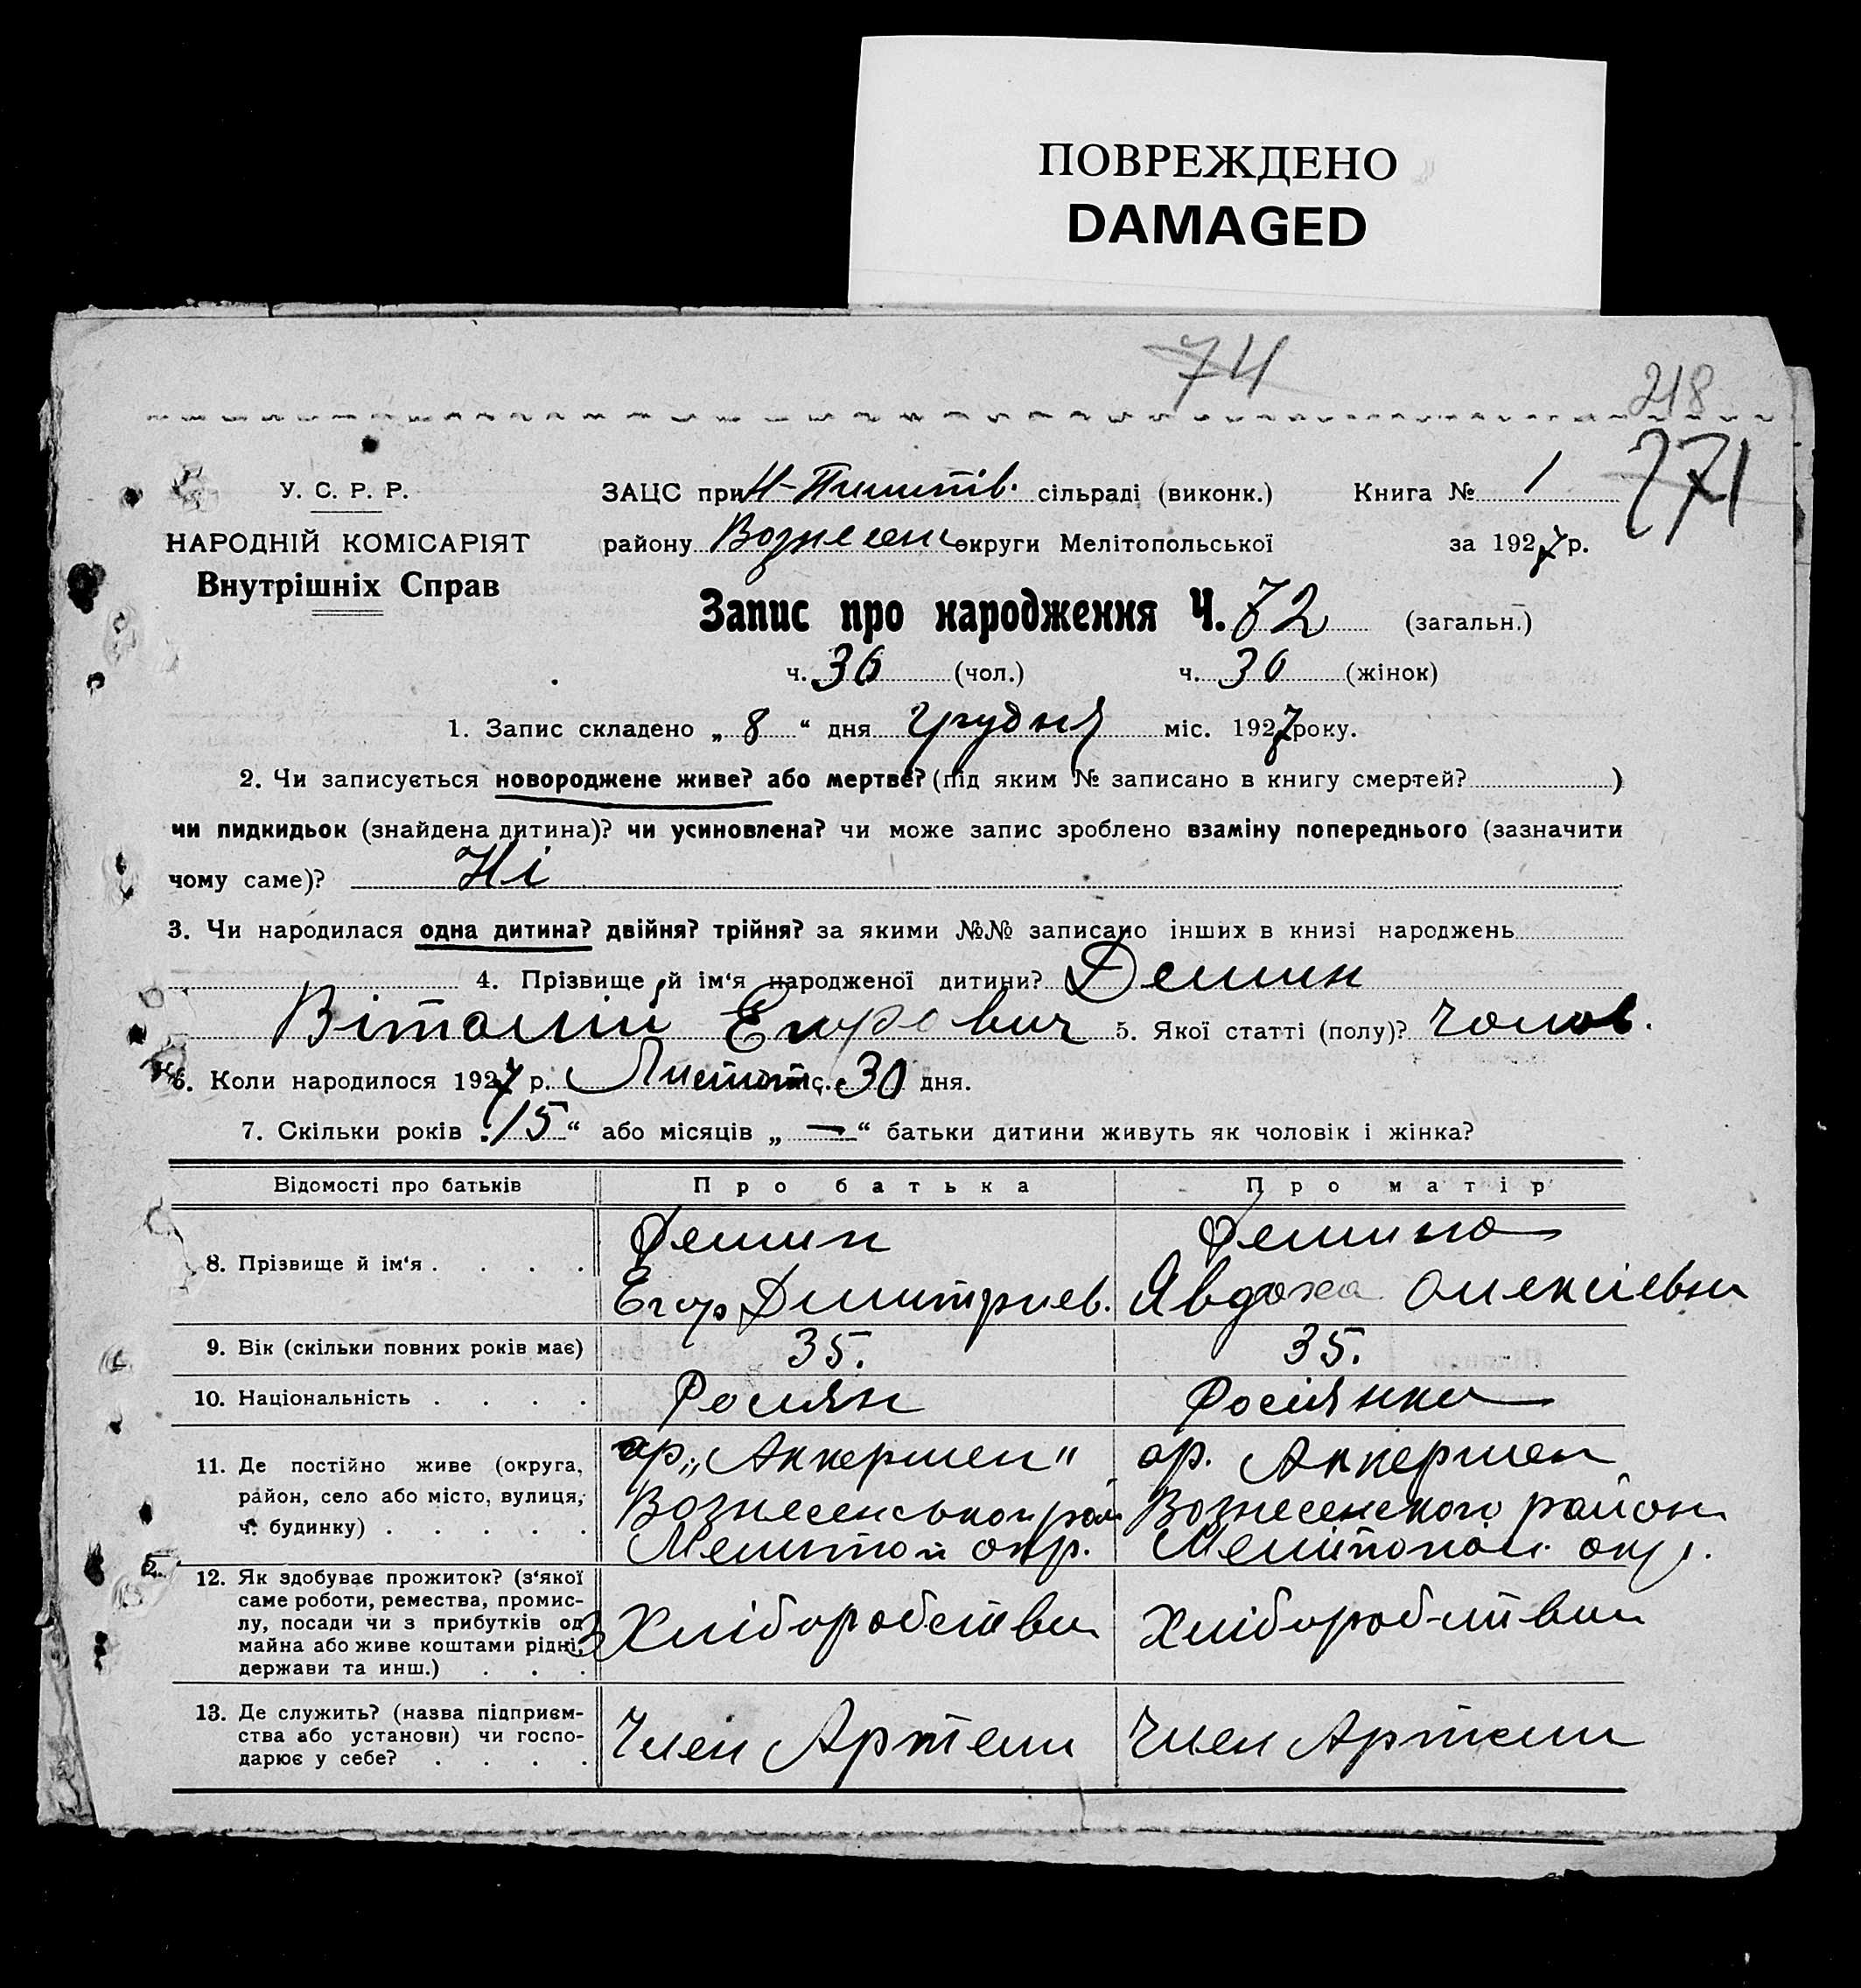 ПОВРЕЖДЕНО
DAMAGED
74
218
271
У. С. Р. Р.
НАРОДНІЙ КОМІСАРІЯТ
Внутрішніх Справ
ЗАЦС при сільраді (виконк.) Книга № 1
району Вознесен округи Мелітопольської за 1927 р.
Запис про народження Ч. 72 (загальн.)
ч. 36 (чол.) ч. 36 (жінок)
1. Запис складено „ 8 “ дня грудня міс. 1927 року.
2. Чи записується новороджене живе? або мертве? (під яким № записано в книгу смертей? )
чи пидкидьок (знайдена дитина)? чи усиновлена? чи може запис зроблено взаміну попереднього (зазначити
чому саме)? Ні
3. Чи народилася одна дитина? двійня? трійня? за якими №№ записано інших в книзі народжень
4. Прізвище й ім‘я народженої дитини? Демин
Віталій Егорович 5. Якої статті (полу)? Чолов.
6. Коли народилося 1927 р. Листоп. міс. 30 дня.
7. Скільки років „ 15 “ або місяців „ — “ батьки дитини живуть як чоловік і жінка?
Відомості про батьків Про батька Про матір
8. Прізвище й ім‘я . . . . Демин Демина
Егор Димитриев. Явдоха Олексіевна
9. Вік (скільки повних років має) 35. 35.
10. Національність . . . . Росіян Росіянка
11. Де постійно живе (округа, ар. „Аккермен“ ар. Аккермен
район, село або місто, вулиця, Вознесенського рай Вознесенского район
ч. будинку) . . . . . Мелітоп окр. Мелітопол. окр.
12. Як здобуває прожиток? (з‘якої
саме роботи, ремества, промислу, посади чи з прибутків од
майна або живе коштами рідні, З Хліборобства Хліборобства
держави та инш.) . . .
13. Де служить? (назва підприємства або установи) чи господарює у себе? . . . . Член Артели Член Артели